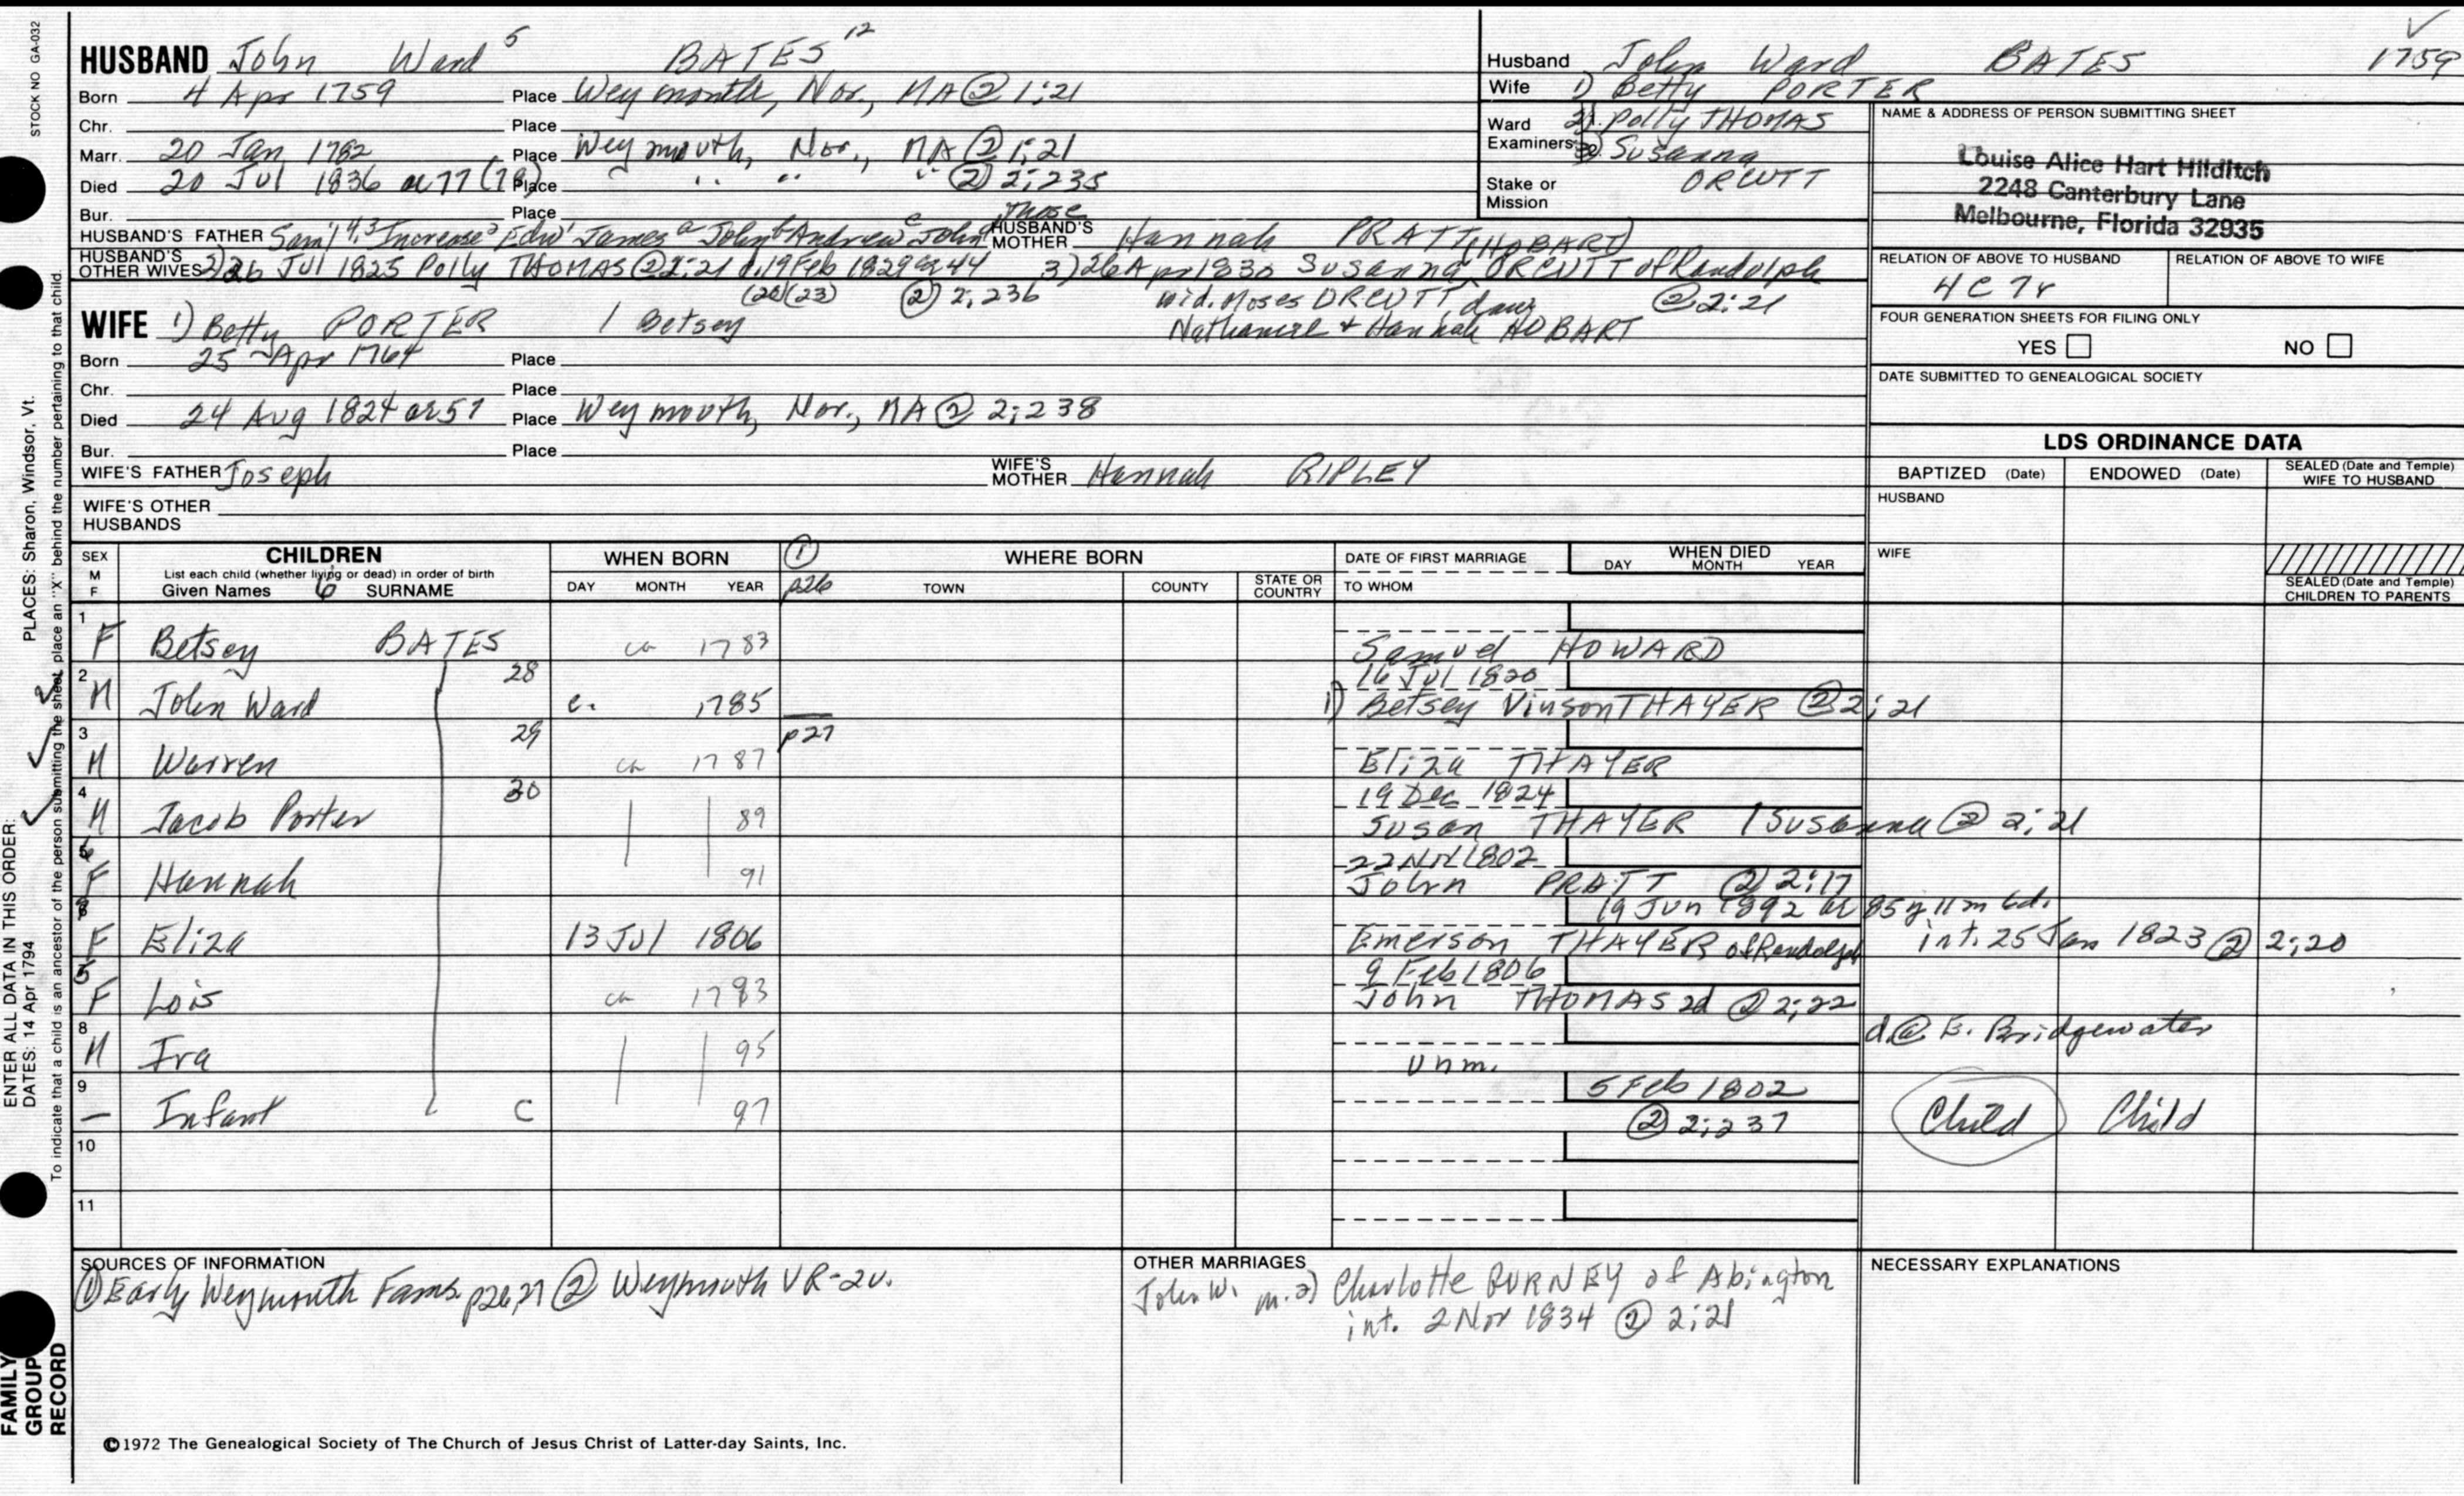 STOCK NO GA-032
HUSBAND John Ward 5 BATES 12
Born 4 Apr 1759 Place Weymouth, Nor., MA @ 1:21
Chr. Place
Marr. 20 Jan 1782 Place Weymouth, Nor., MA ② 1:21
Died 20 Jul 1836 ae 77 (78) Place " " " ② 2:235
Bur. Place
HUSBAND'S FATHER Sam'l 4,3 Increase Edw' James John Andrew John HUSBAND'S MOTHER Hannah PRATT (HOBART)
HUSBAND'S OTHER WIVES 2) 26 Jul 1825 Polly THOMAS ② 2:21 d. 19 Feb 1829 ae 44 3) 26 Apr 1830 Susanna ORCUTT of Randolph
② 2:236 wid. Moses ORCUTT, dau ② 2:21
Nathaniel + Hannah HOBART
WIFE 1) Betty PORTER / Betsey
Born 25 Apr 1764 Place
Chr. Place
Died 24 Aug 1824 ae 57 Place Weymouth, Nor., MA ② 2:238
Bur. Place
WIFE'S FATHER Joseph WIFE'S MOTHER Hannah RIPLEY
WIFE'S OTHER HUSBANDS
Husband John Ward BATES 1759
Wife 1) Betty PORTER
Ward Examiners 2) Polly THOMAS
3) Susanna ORCUTT
Stake or Mission
NAME & ADDRESS OF PERSON SUBMITTING SHEET
Louise Alice Hart Hilditch
2248 Canterbury Lane
Melbourne, Florida 32935
RELATION OF ABOVE TO HUSBAND RELATION OF ABOVE TO WIFE
4C7r
FOUR GENERATION SHEETS FOR FILING ONLY
YES NO
DATE SUBMITTED TO GENEALOGICAL SOCIETY
LDS ORDINANCE DATA
BAPTIZED (Date) ENDOWED (Date) SEALED (Date and Temple) WIFE TO HUSBAND
HUSBAND
WIFE
SEALED (Date and Temple) CHILDREN TO PARENTS
SEX M F CHILDREN WHEN BORN ① WHERE BORN DATE OF FIRST MARRIAGE WHEN DIED
List each child (whether living or dead) in order of birth
Given Names 6 SURNAME DAY MONTH YEAR p26 TOWN COUNTY STATE OR COUNTRY TO WHOM DAY MONTH YEAR
1 F Betsey BATES ca 1783 Samuel HOWARD
2 M John Ward 28 c. 1785 16 Jul 1820
1) Betsey Vinson THAYER ② 2:21
3 M Warren 29 ca 1787 p27 Eliza THAYER
4 M Jacob Porter 30 89 19 Dec 1824
Susan THAYER / Susanna ② 2:21
6 F Hannah 91 22 Nov 1802
John PRATT ② 2:17
F Eliza 13 Jul 1806 19 Jun 1892 ae 85 y 11 m 6d.
Emerson THAYER of Randolph int. 25 Jan 1823 ② 2:20
5 F Lois ca 1793 9 Feb 1806
John THOMAS 2d ② 2:22
8 M Ira 95 unm. d @ E. Bridgewater
9 — Infant C 97 5 Feb 1802
② 2:237 Child Child
10
11
SOURCES OF INFORMATION
① Early Weymouth Fams. p26,27 ② Weymouth VR-2v.
OTHER MARRIAGES
John W. m. 2) Charlotte BURNEY of Abington
int. 2 Nov 1834 ② 2:21
NECESSARY EXPLANATIONS
©1972 The Genealogical Society of The Church of Jesus Christ of Latter-day Saints, Inc.
ENTER ALL DATA IN THIS ORDER:
DATES: 14 Apr 1794 PLACES: Sharon, Windsor, Vt.
To indicate that a child is an ancestor of the person submitting the sheet, place an "X" behind the number pertaining to that child.
FAMILY GROUP RECORD